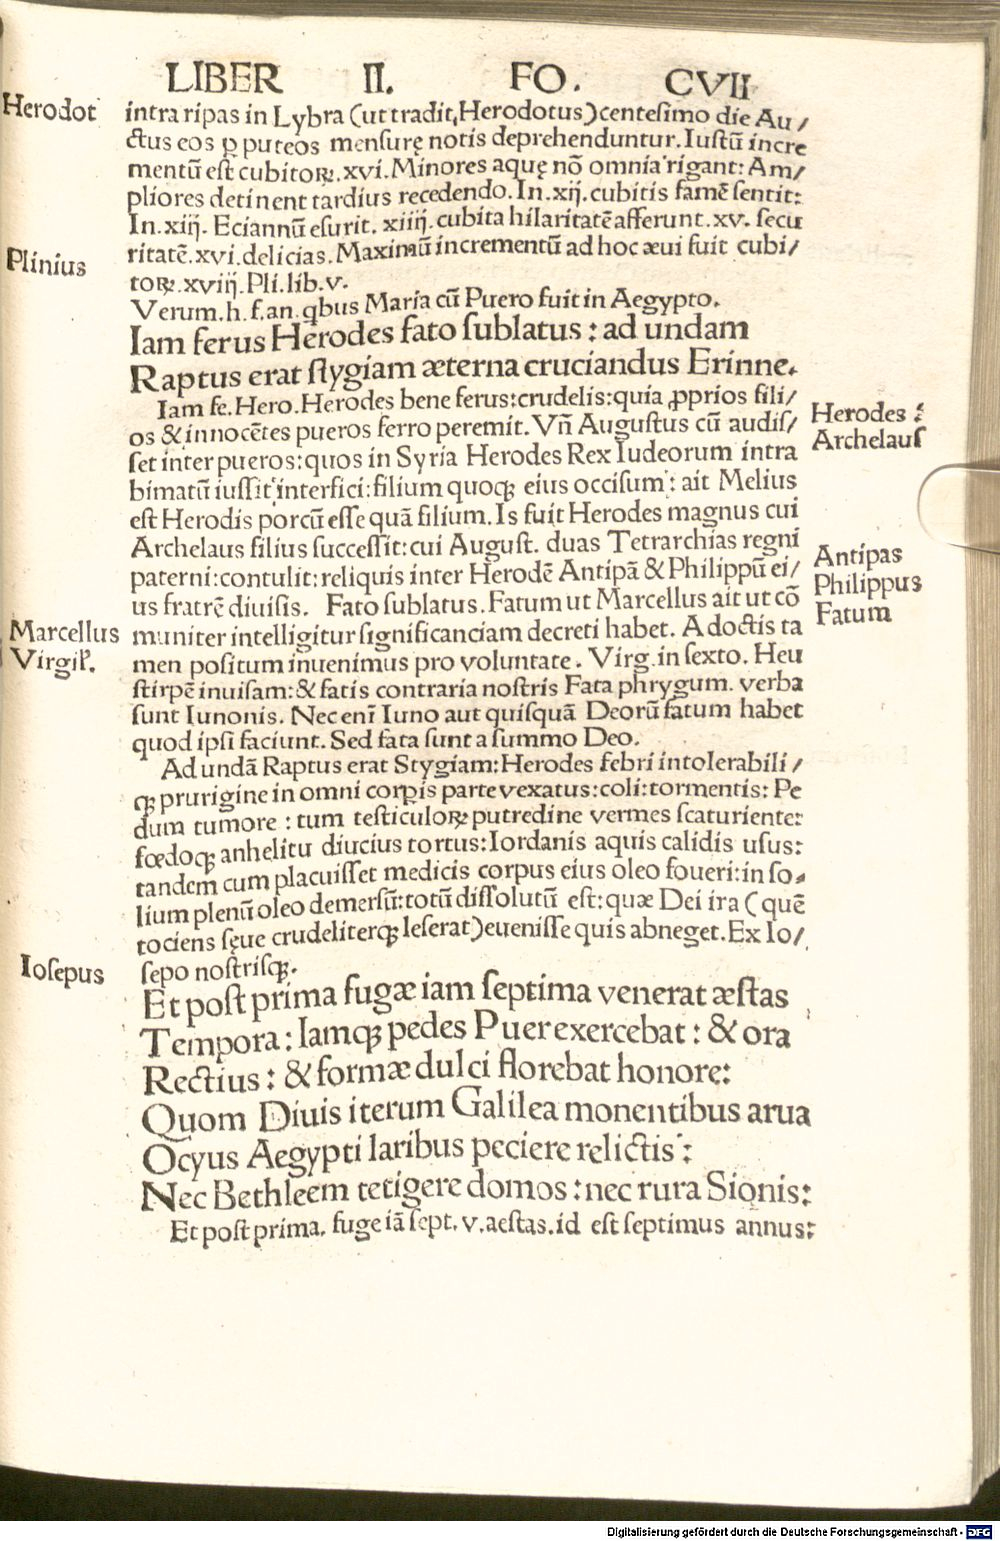 LIBER II. FO. CVII
Herodot
intra ripas in Lybra (ut tradit, Herodotus) centesimo die Au/
ctus eos ꝑ puteos mensurę notis deprehenduntur. Iustũ incre
mentũ est cubitoꝝ. xvi. Minores aquę nõ omnia rigant: Am/
pliores detinent tardius recedendo. In. xij. cubitis famẽ sentit:
In. xiij. Eciannũ esurit. xiiij. cubita hilaritatẽ afferunt. xv. secu
ritatẽ. xvi. delicias. Maximũ incrementũ ad hoc æui fuit cubi/
Plinius
toꝝ. xviij. Pli. lib. v.
Verum. h. f. an. qbus Maria cũ Puero fuit in Aegypto.
Iam ferus Herodes fato sublatus: ad undam
Raptus erat stygiam æterna cruciandus Erinne.
Iam fe. Hero. Herodes bene ferus: crudelis: quia ꝓprios fili/
Herodes:
os & innocẽtes pueros ferro peremit. Vñ Augustus cũ audis/
Archelaus
set inter pueros: quos in Syria Herodes Rex Iudeorum intra
bimatũ iussit interfici: filium quoqꝫ eius occisum: ait Melius
est Herodis porcũ esse quã filium. Is fuit Herodes magnus cui
Archelaus filius successit: cui August. duas Tetrarchias regni
Antipas
paterni: contulit: reliquis inter Herodẽ Antipã & Philippũ ei/
Philippus
us fratrẽ diuisis. Fato sublatus. Fatum ut Marcellus ait ut cõ
Fatum
Marcellus
muniter intelligitur significanciam decreti habet. A doctis ta
Virgil.
men positum inuenimus pro voluntate. Virg. in sexto. Heu
stirpẽ inuisam: & fatis contraria nostris Fata phrygum. verba
sunt Iunonis. Nec enĩ Iuno aut quisquã Deorũ fatum habet
quod ipsi faciunt. Sed fata sunt a summo Deo.
Ad undã Raptus erat Stygiam: Herodes febri intolerabili/
qꝫ prurigine in omni corꝑis parte vexatus: coli: tormentis: Pe
dum tumore: tum testiculoꝝ putredine vermes scaturiente:
fœdoqꝫ anhelitu diucius tortus: Iordanis aquis calidis usus:
tandem cum placuisset medicis corpus eius oleo foueri: in so/
lium plenũ oleo demersũ: totũ dissolutũ est: quæ Dei ira (quẽ
tociens sęue crudeliterqꝫ leserat) euenisse quis abneget. Ex Io/
Iosepus
sepo nostrisqꝫ.
Et post prima fugæ iam septima venerat æstas
Tempora: Iamqꝫ pedes Puer exercebat: & ora
Rectius: & formæ dulci florebat honore:
Quom Diuis iterum Galilea monentibus arua
Ocyus Aegypti laribus peciere relictis:
Nec Bethleem tetigere domos: nec rura Sionis:
Et post prima. fuge iã sept. v. aestas. id est septimus annus:
Digitalisierung gefördert durch die Deutsche Forschungsgemeinschaft - DFG